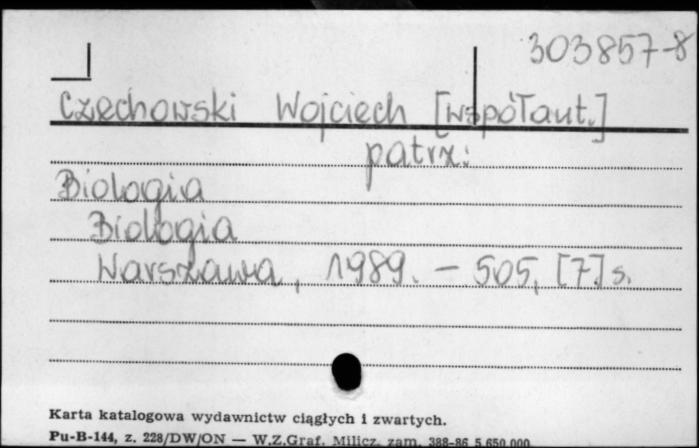 303857-8
Czechowski Wojciech [współaut.]
patrz:
Biologia
Biologia
Warszawa, 1989. – 505, [7] s.
Karta katalogowa wydawnictw ciągłych i zwartych.
Pu-B-144, z. 228/DW/ON — W.Z.Graf. Milicz, zam. 388-86 5.650.000